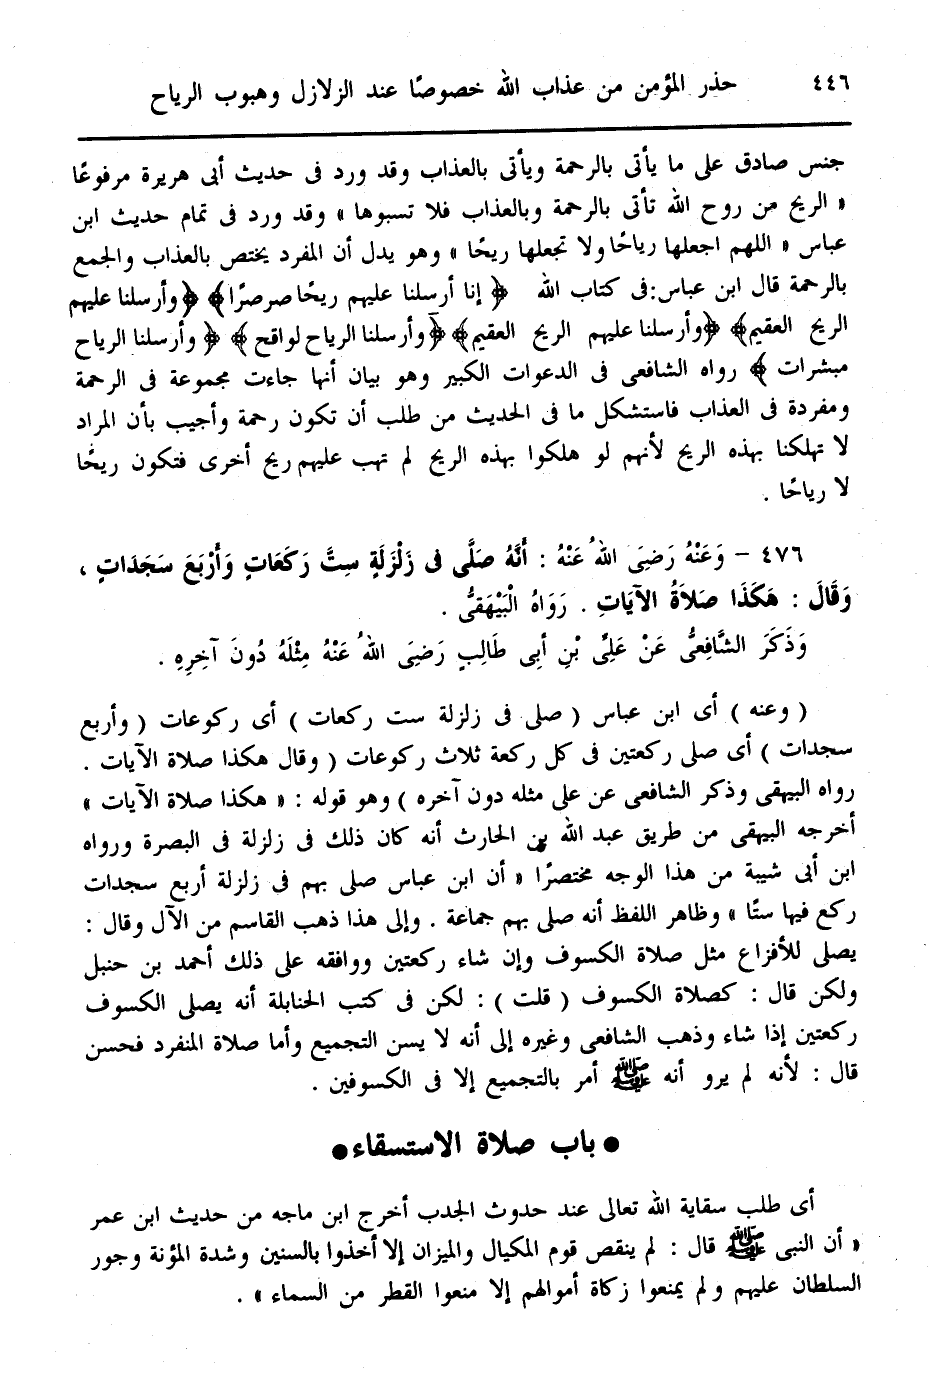 ٤٤٦ حذر المؤمن من عذاب الله خصوصًا عند الزلازل وهبوب الرياح
جنس صادق على ما يأتى بالرحمة ويأتى بالعذاب وقد ورد فى حديث أبى هريرة مرفوعًا
« الريح من روح الله تأتى بالرحمة وبالعذاب فلا تسبوها » وقد ورد فى تمام حديث ابن
عباس « اللهم اجعلها رياحًا ولا تجعلها ريحًا » وهو يدل أن المفرد يختص بالعذاب والجمع
بالرحمة قال ابن عباس:فى كتاب الله ﴿ إنا أرسلنا عليهم ريحًا صرصرًا﴾ ﴿وأرسلنا عليهم
الريح العقيم﴾ ﴿وأرسلنا عليهم الريح العقيم﴾ ﴿وأرسلنا الرياح لواقح﴾ ﴿ وأرسلنا الرياح
مبشرات ﴾ رواه الشافعى فى الدعوات الكبير وهو بيان أنها جاءت مجموعة فى الرحمة
ومفردة فى العذاب فاستشكل ما فى الحديث من طلب أن تكون رحمة وأجيب بأن المراد
لا تهلكنا بهذه الريح لأنهم لو هلكوا بهذه الريح لم تهب عليهم ريح أخرى فتكون ريحًا
لا رياحًا .
٤٧٦ – وَعَنْهُ رَضِىَ اللهُ عَنْهُ : أَنَّهُ صَلَّى فى زَلْزَلَةٍ سِتَّ رَكَعَاتٍ وَأَرْبَعَ سَجَدَاتٍ ،
وَقَالَ : هَكَذَا صَلاَةُ الآيَاتِ . رَوَاهُ الْبَيْهَقىُّ .
وَذَكَرَ الشَّافِعىُّ عَنْ عَلىِّ بْنِ أبى طَالِبٍ رَضِىَ اللهُ عَنْهُ مِثْلَهُ دُونَ آخِرِهِ .
( وعنه ) أى ابن عباس ( صلى فى زلزلة ست ركعات ) أى ركوعات ( وأربع
سجدات ) أى صلى ركعتين فى كل ركعة ثلاث ركوعات ( وقال هكذا صلاة الآيات .
رواه البيهقى وذكر الشافعى عن على مثله دون آخره ) وهو قوله : « هكذا صلاة الآيات »
أخرجه البيهقى من طريق عبد الله بن الحارث أنه كان ذلك فى زلزلة فى البصرة ورواه
ابن أبى شيبة من هذا الوجه مختصرًا « أن ابن عباس صلى بهم فى زلزلة أربع سجدات
ركع فيها ستًا » وظاهر اللفظ أنه صلى بهم جماعة . وإلى هذا ذهب القاسم من الآل وقال :
يصلى للأفزاع مثل صلاة الكسوف وإن شاء ركعتين ووافقه على ذلك أحمد بن حنبل
ولكن قال : كصلاة الكسوف ( قلت ) : لكن فى كتب الحنابلة أنه يصلى الكسوف
ركعتين إذا شاء وذهب الشافعى وغيره إلى أنه لا يسن التجميع وأما صلاة المنفرد فحسن
قال : لأنه لم يرو أنه ﷺ أمر بالتجميع إلا فى الكسوفين .
● باب صلاة الاستسقاء ●
أى طلب سقاية الله تعالى عند حدوث الجدب أخرج ابن ماجه من حديث ابن عمر
« أن النبى ﷺ قال : لم ينقص قوم المكيال والميزان إلا أخذوا بالسنين وشدة المؤنة وجور
السلطان عليهم ولم يمنعوا زكاة أموالهم إلا منعوا القطر من السماء » .